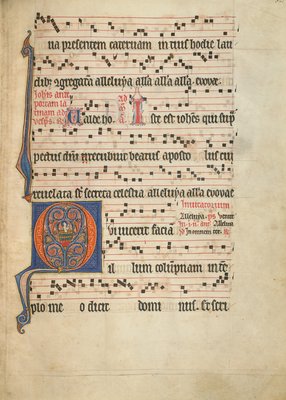 na presentem cateruam in tuis hodie lau
dib; 9gregata alleluya alla alla alla. euouae.
Johis ante
portam la
tinam ad
vesp̃s. Valde ho. Ad Iste est iohẽs qui sup
pectus dñi recubuit beatus aposto lus cui
reuelata st̃ secreta celestia alleluya alla euouae
Inuitatorium
Alleluya. ps Venite
Qui uicerit facia
il lum columpnam in tẽ
plo me o dicit domi nus. Et scri